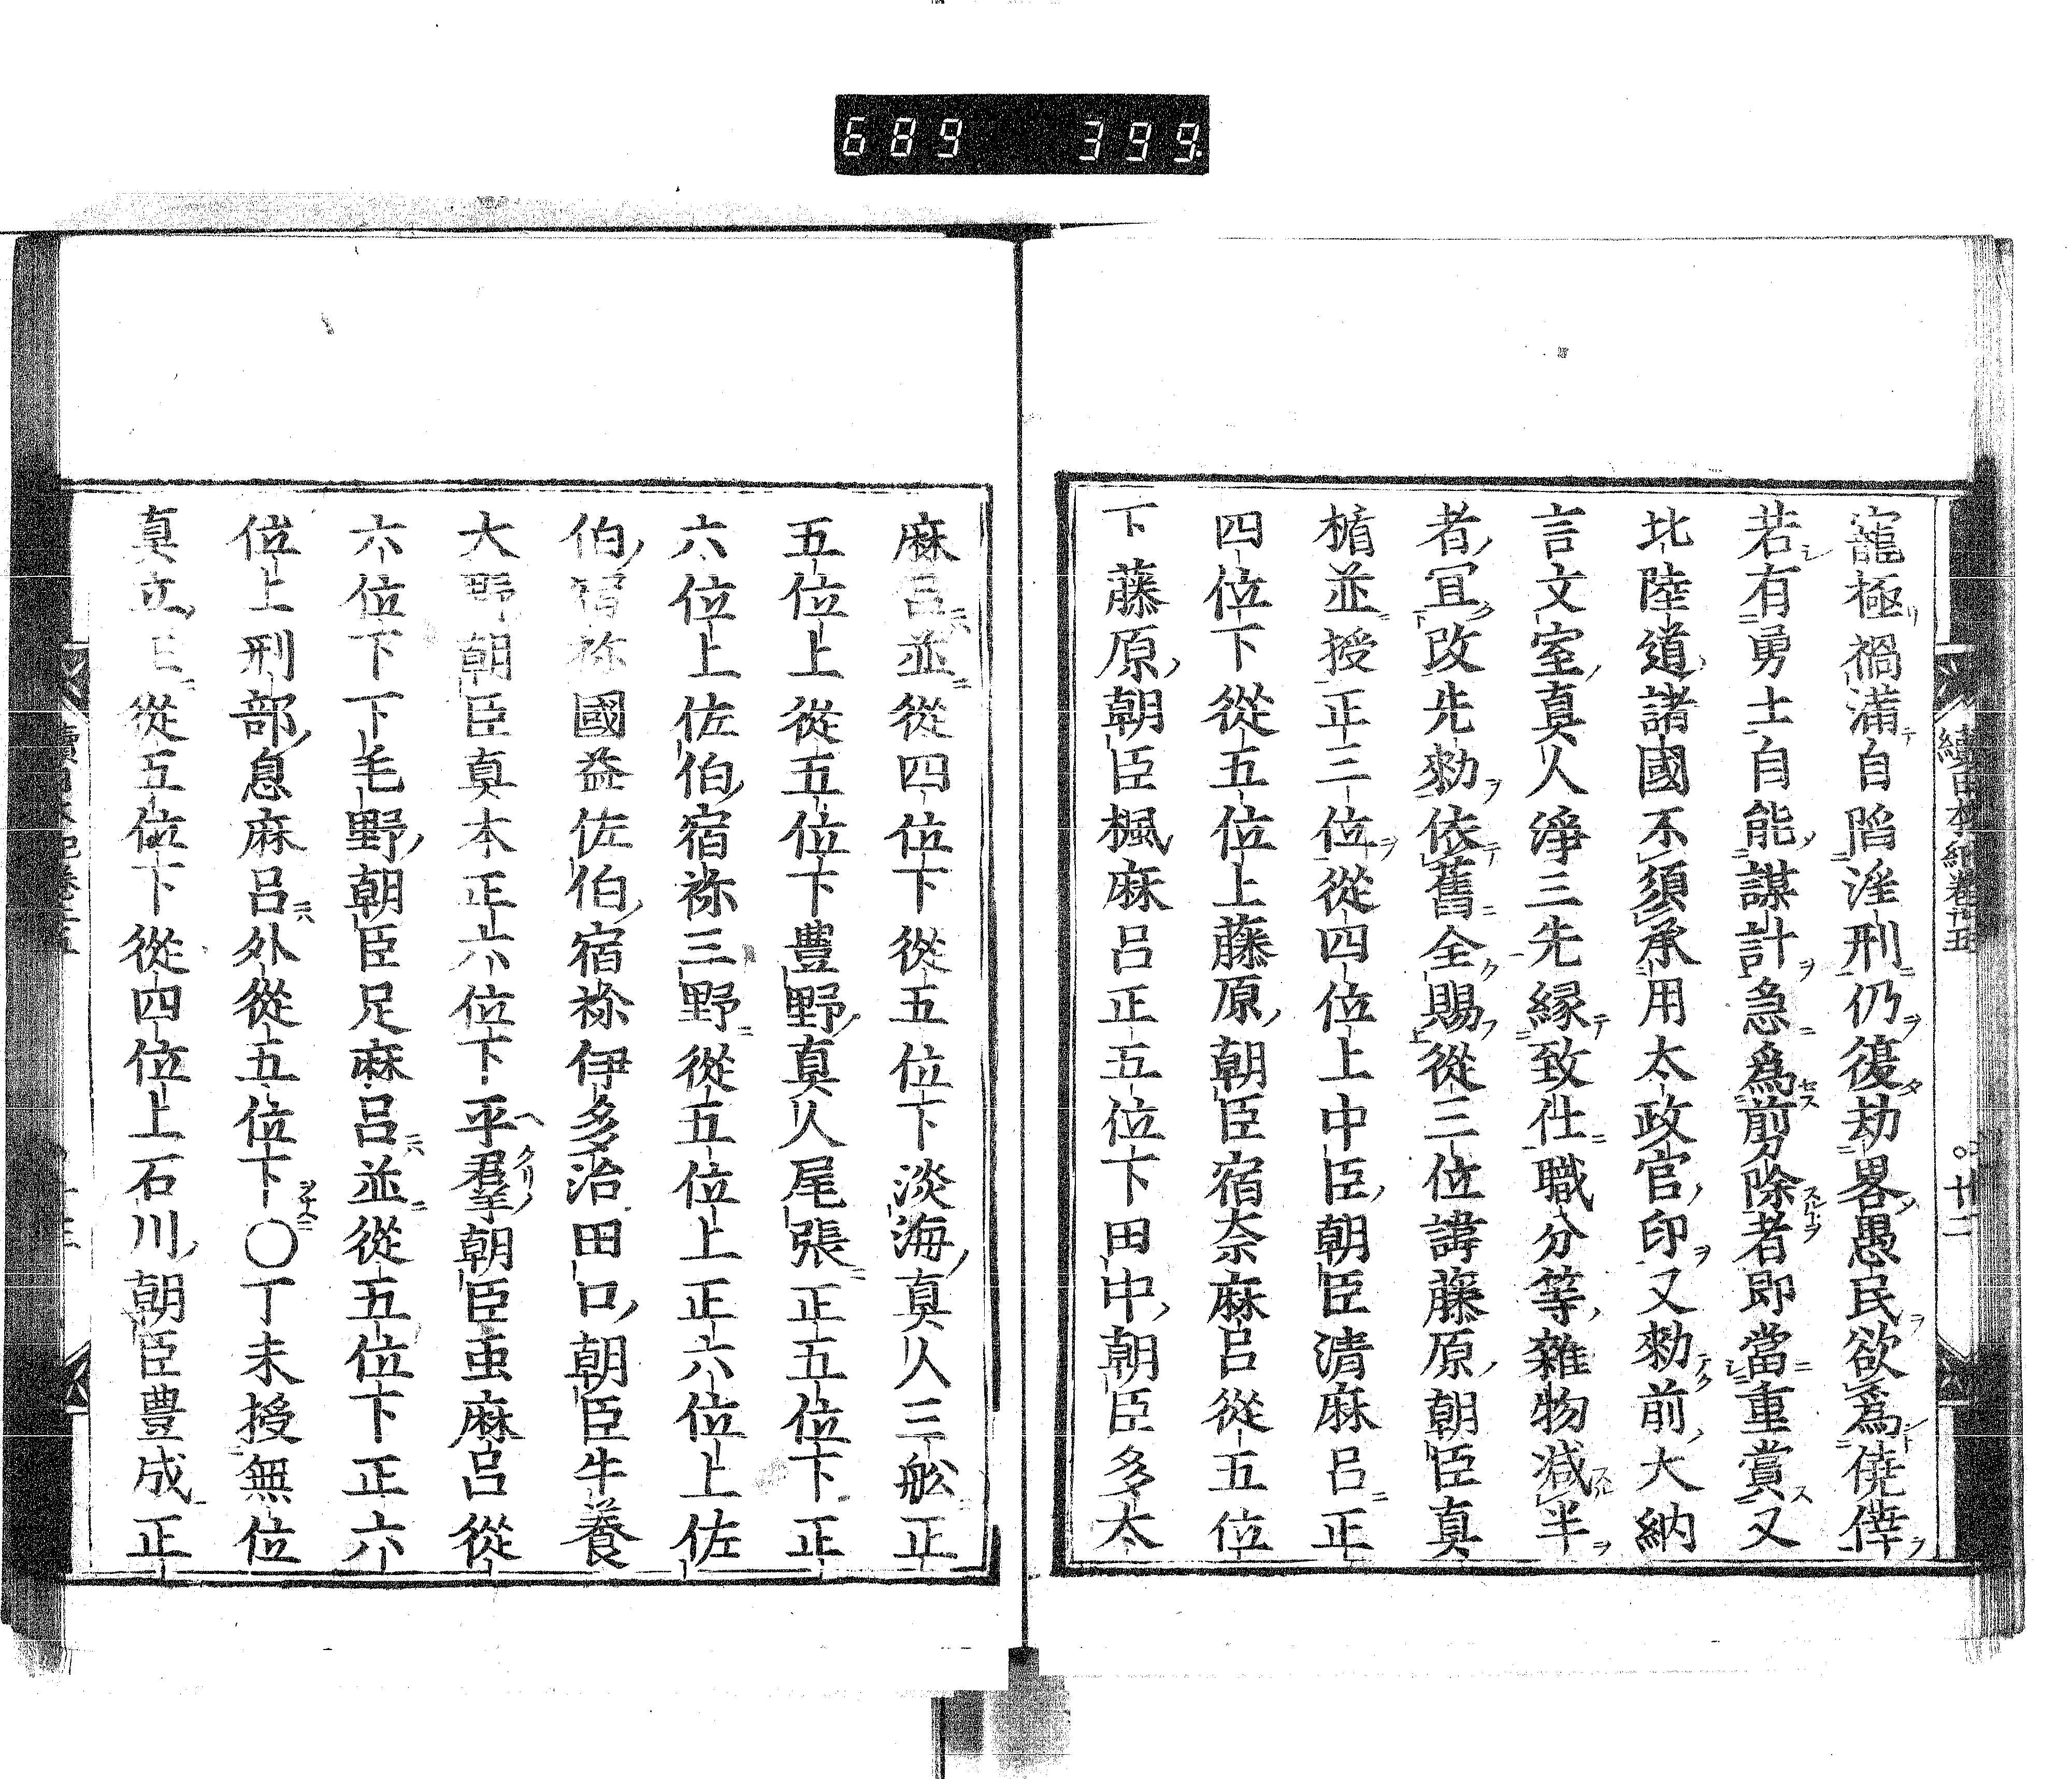 689 399.
續日本紀卷廿五 廿二
寵極禍滿自陷淫刑仍復劫畧愚民欲爲僥倖
若有勇士自能謀計急爲剪除者即當重賞又
北陸道諸國不須承用太政官印又勅前大納
言文室真人淨三先縁致仕職分等雜物減半
者宜改先勅依舊全賜從三位諱藤原朝臣真
楯並授正三位從四位上中臣朝臣清麻呂正
四位下從五位上藤原朝臣宿奈麻呂從五位
下藤原朝臣楓麻呂正五位下田中朝臣多太
麻呂並從四位下從五位下淡海真人三舩正
五位上從五位下豊野真人尾張正五位下正
六位上佐伯宿祢三野從五位上正六位上佐
伯宿祢國益佐伯宿祢伊多治田口朝臣牛養
大野朝臣真本正六位下平羣朝臣虫麻呂從
六位下下毛野朝臣足麻呂並從五位下正六
位上刑部息麻呂外從五位下〇丁未授無位
真立王從五位下從四位上石川朝臣豊成正